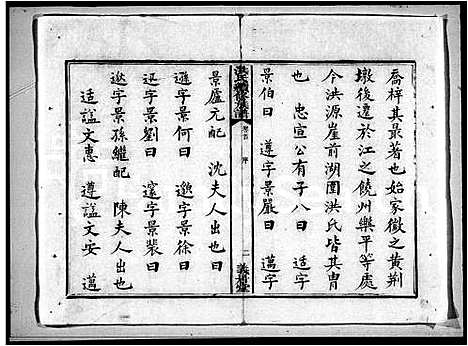 喬梓其最著也始家徽之黄荆
墩後遷於江之饒州樂平等處
今洪源崖前湖圍洪氏皆其胄
也 忠宣公有子八曰 适字
景伯曰 遵字景嚴曰 邁字
洪氏 宗譜
卷首 序 二
景廬元配 沈夫人出也曰
遜字景何曰 邀字景徐曰
迅字景劉曰 邃字景裴曰
逖字景孫繼配 陳夫人出也
适諡文惠 遵諡文安 邁